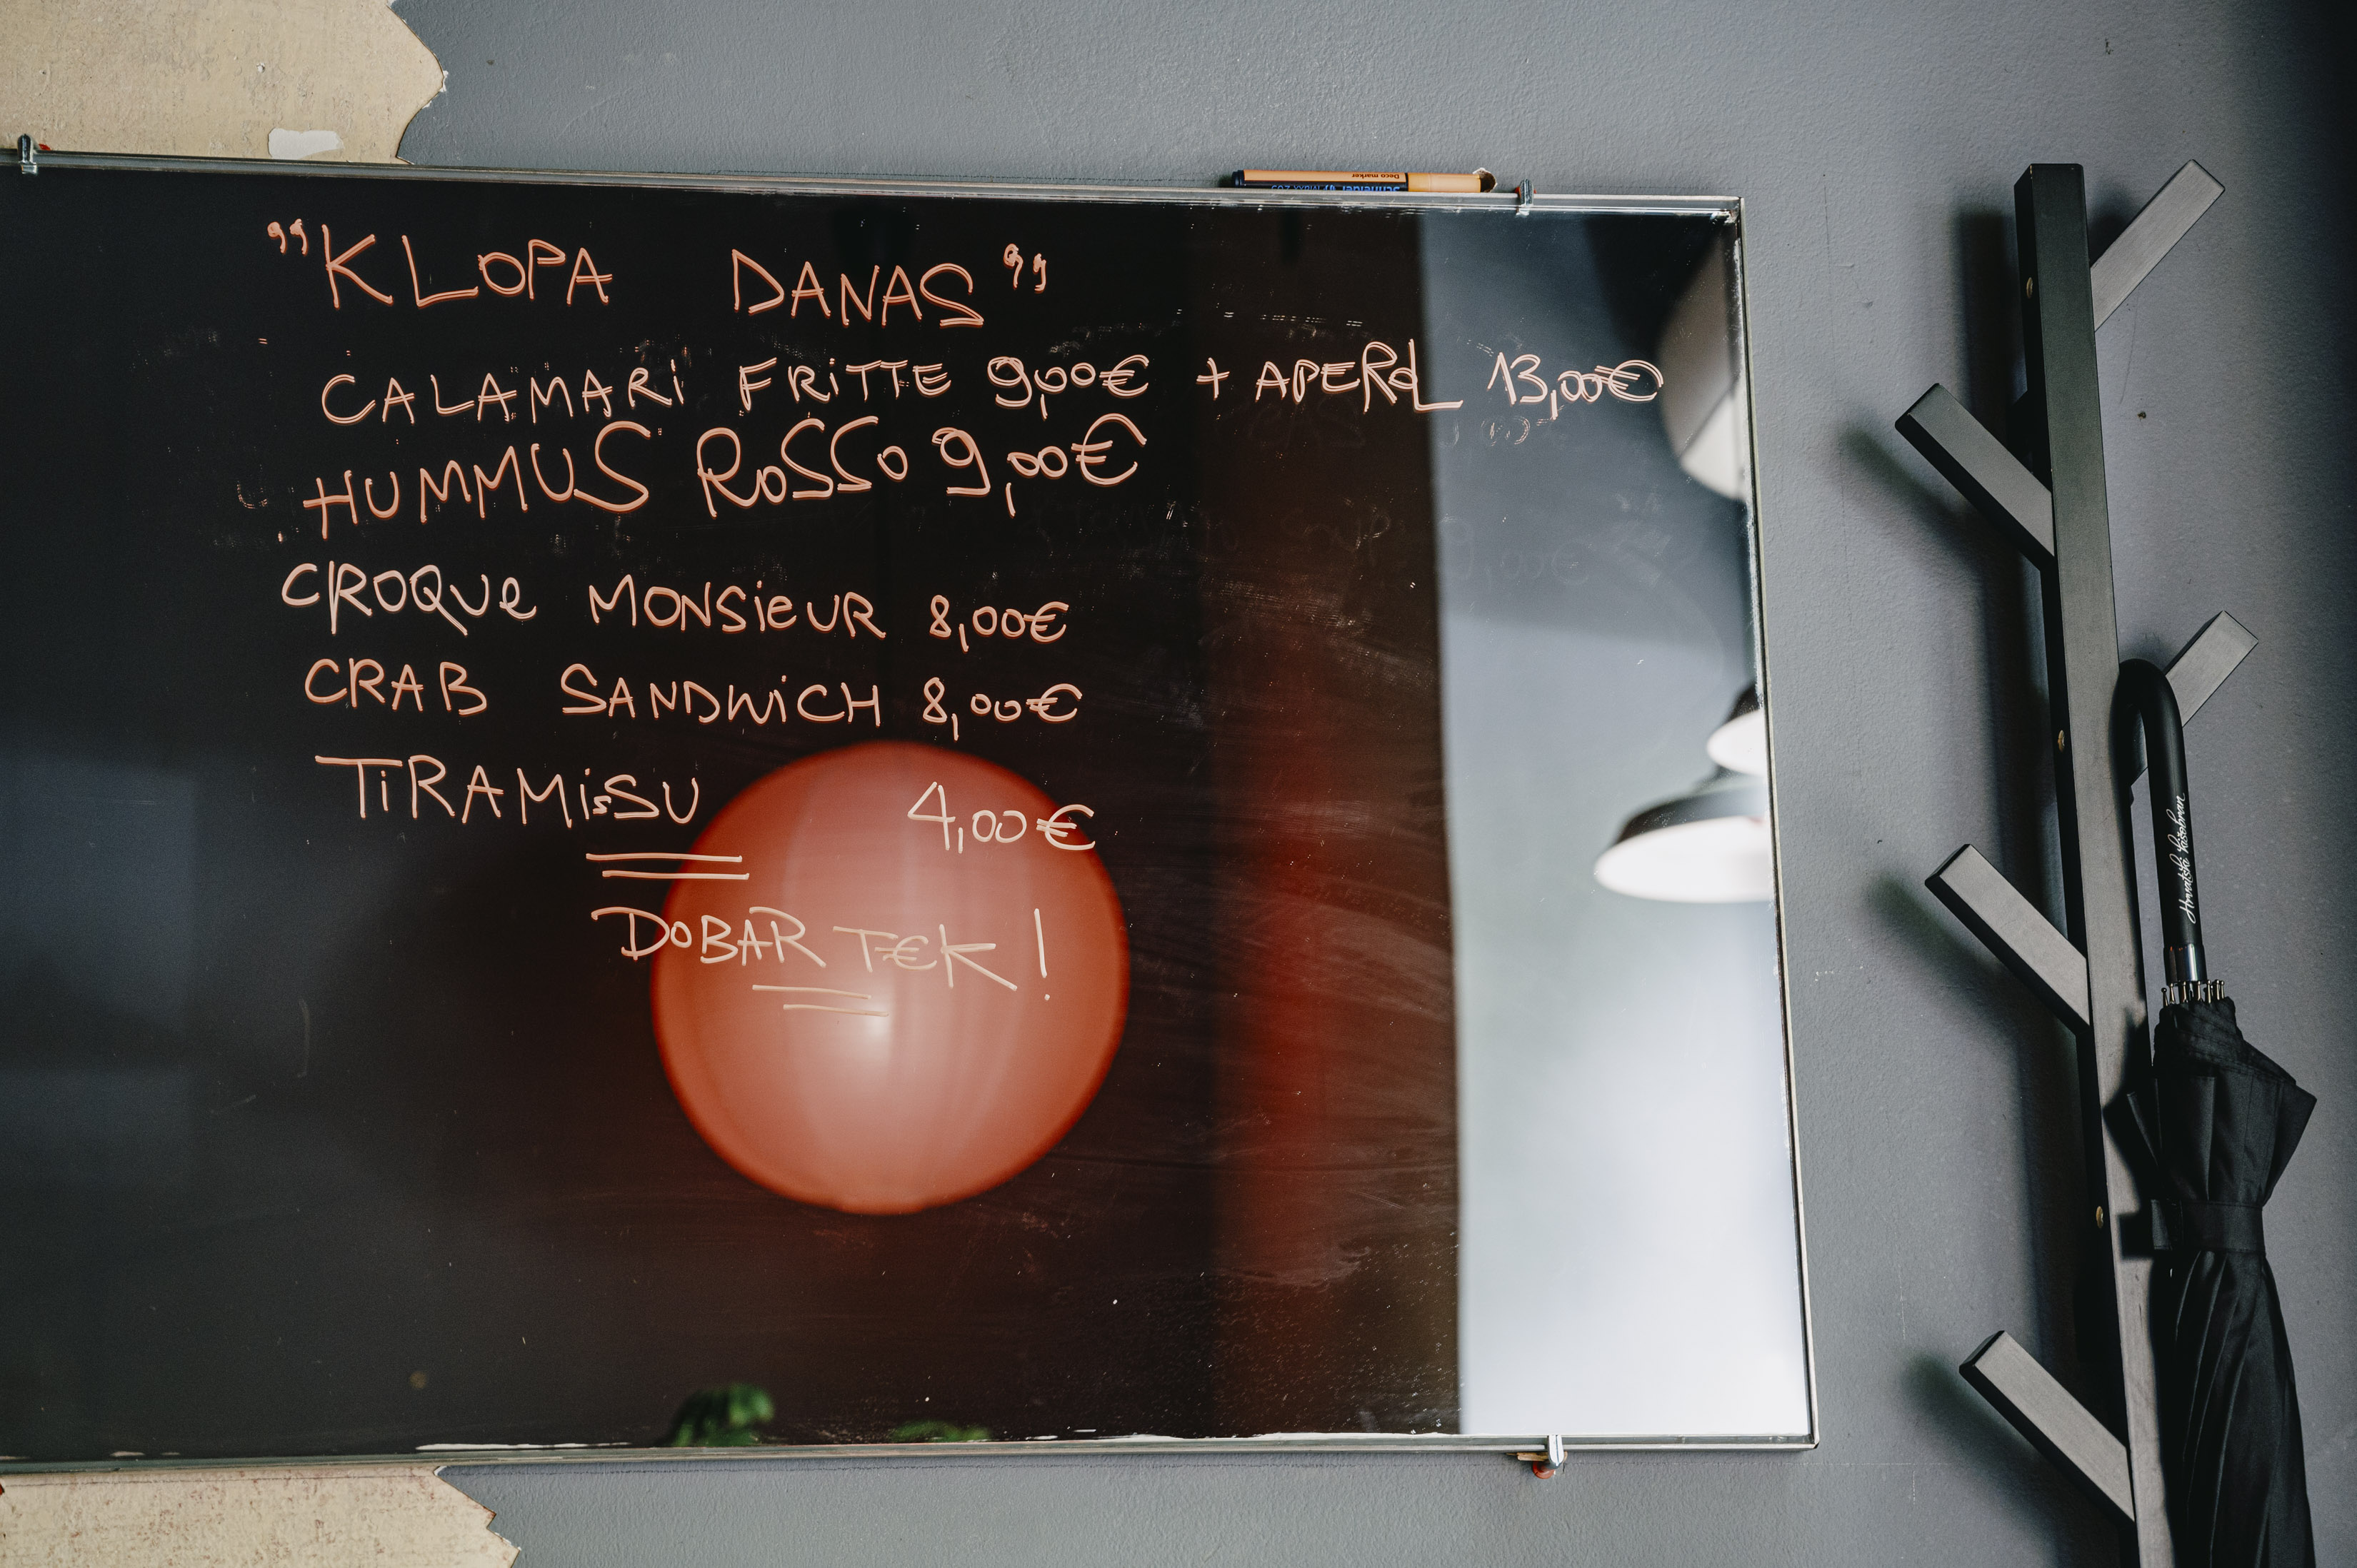 "KLOPA DANAS"
CALAMARI FRITTE 9,00€ + APEROL 13,00€
HUMMUS ROSSO 9,00€
CROQUE MONSIEUR 8,00€
CRAB SANDWICH 8,00€
TIRAMISSU 4,00€
DOBAR TEK!
Deco marker
Schneider
Hrvatski kišobran